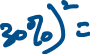 30%)²=